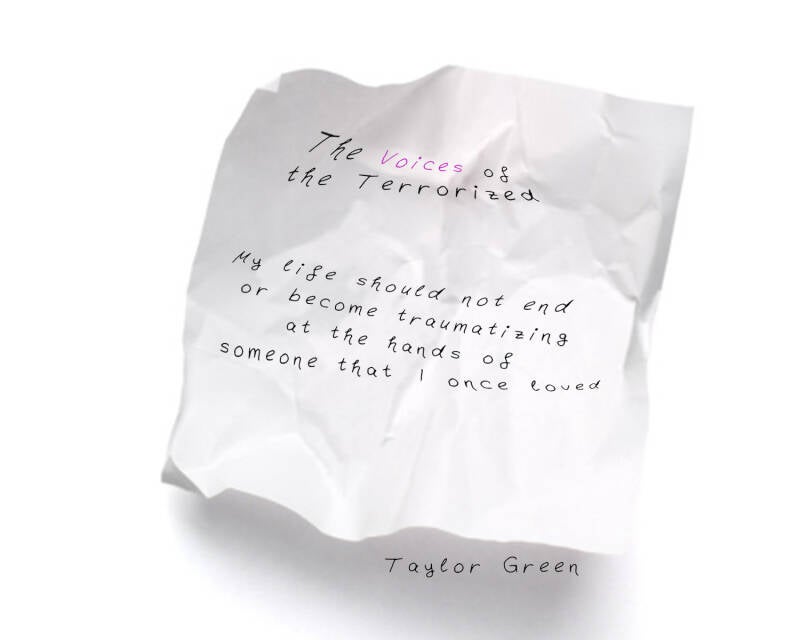 The Voices of
the Terrorized
My life should not end
or become traumatizing
at the hands of
someone that I once loved
Taylor Green